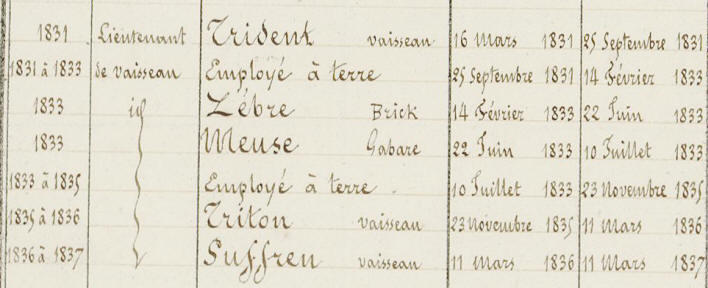 1831 Lieutenant Trident vaisseau 16 Mars 1831 25 Septembre 1831
1831 à 1833 de vaisseau Employé à terre 25 Septembre 1831 14 Février 1833
1833 id Zébre Brick 14 Février 1833 22 Juin 1833
1833 Meuse Gabare 22 Juin 1833 10 Juillet 1833
1833 à 1835 Employé à terre. 10 Juillet 1833 23 Novembre 1835
1835 à 1836 Triton vaisseau 23 Novembre 1835 11 Mars 1836
1836 à 1837 Suffren vaisseau 11 Mars 1836 11 Mars 1837